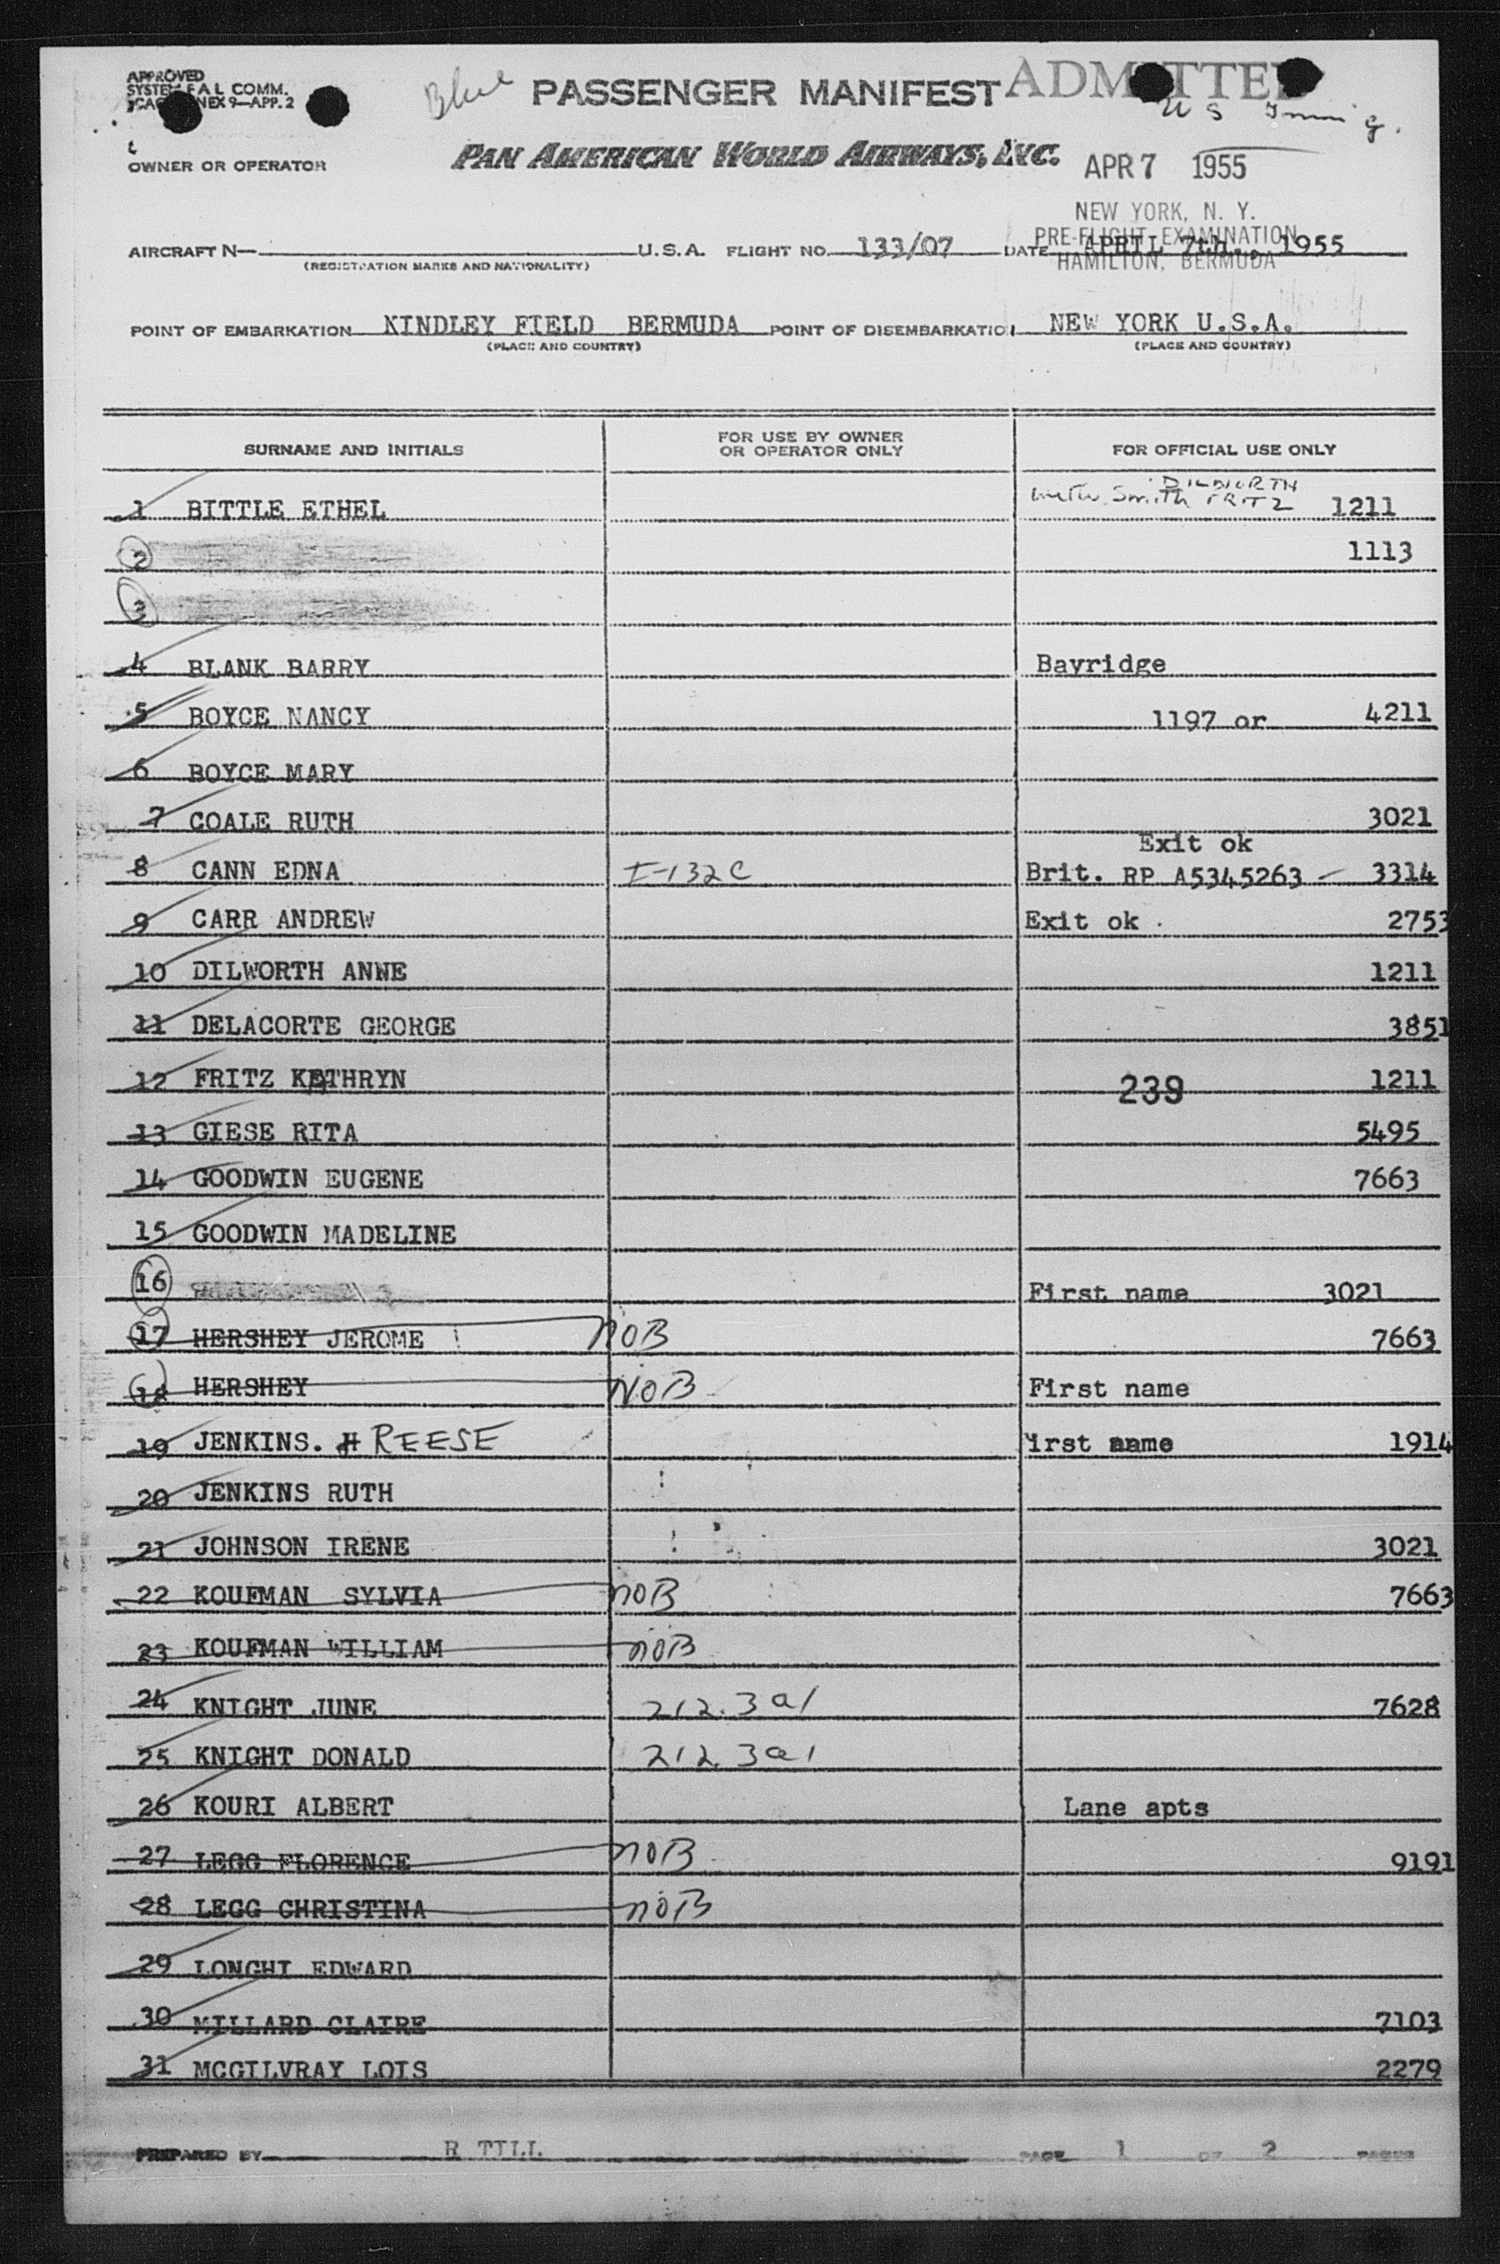 APPROVED
SYSTEM F A L COMM.
ICAO ANNEX 9—APP. 2
Blue
PASSENGER MANIFEST
ADMITTED
U S Immig.
OWNER OR OPERATOR
PAN AMERICAN WORLD AIRWAYS, INC.
APR 7 1955
NEW YORK, N. Y.
PRE-FLIGHT EXAMINATION
HAMILTON, BERMUDA
AIRCRAFT N— U.S.A. FLIGHT NO. 133/07 DATE APRIL 7th., 1955
(REGISTRATION MARKS AND NATIONALITY)
POINT OF EMBARKATION KINDLEY FIELD BERMUDA POINT OF DISEMBARKATION NEW YORK U.S.A.
(PLACE AND COUNTRY) (PLACE AND COUNTRY)
SURNAME AND INITIALS FOR USE BY OWNER OR OPERATOR ONLY FOR OFFICIAL USE ONLY
DILWORTH
1 BITTLE ETHEL with Smith FRITZ 1211
2 1113
3
4 BLANK BARRY Bayridge
5 BOYCE NANCY 1197 or 4211
6 BOYCE MARY
7 COALE RUTH 3021
Exit ok
8 CANN EDNA I-132C Brit. RP A5345263 — 3314
9 CARR ANDREW Exit ok . 2753
10 DILWORTH ANNE 1211
11 DELACORTE GEORGE 3851
12 FRITZ KATHRYN 239 1211
13 GIESE RITA 5495
14 GOODWIN EUGENE 7663
15 GOODWIN MADELINE
16 First name 3021
17 HERSHEY JEROME NOB 7663
18 HERSHEY NOB First name
19 JENKINS. H REESE irst name 1914
20 JENKINS RUTH
21 JOHNSON IRENE 3021
22 KOUFMAN SYLVIA NOB 7663
23 KOUFMAN WILLIAM NOB
24 KNIGHT JUNE 212.3a1 7628
25 KNIGHT DONALD 212.3a1
26 KOURI ALBERT Lane apts
27 LEGG FLORENCE NOB 9191
28 LEGG CHRISTINA NOB
29 LONGHI EDWARD
30 MILLARD CLAIRE 7103
31 MCGILVRAY LOIS 2279
PREPARED BY R TILL PAGE 1 OF 2 PAGES